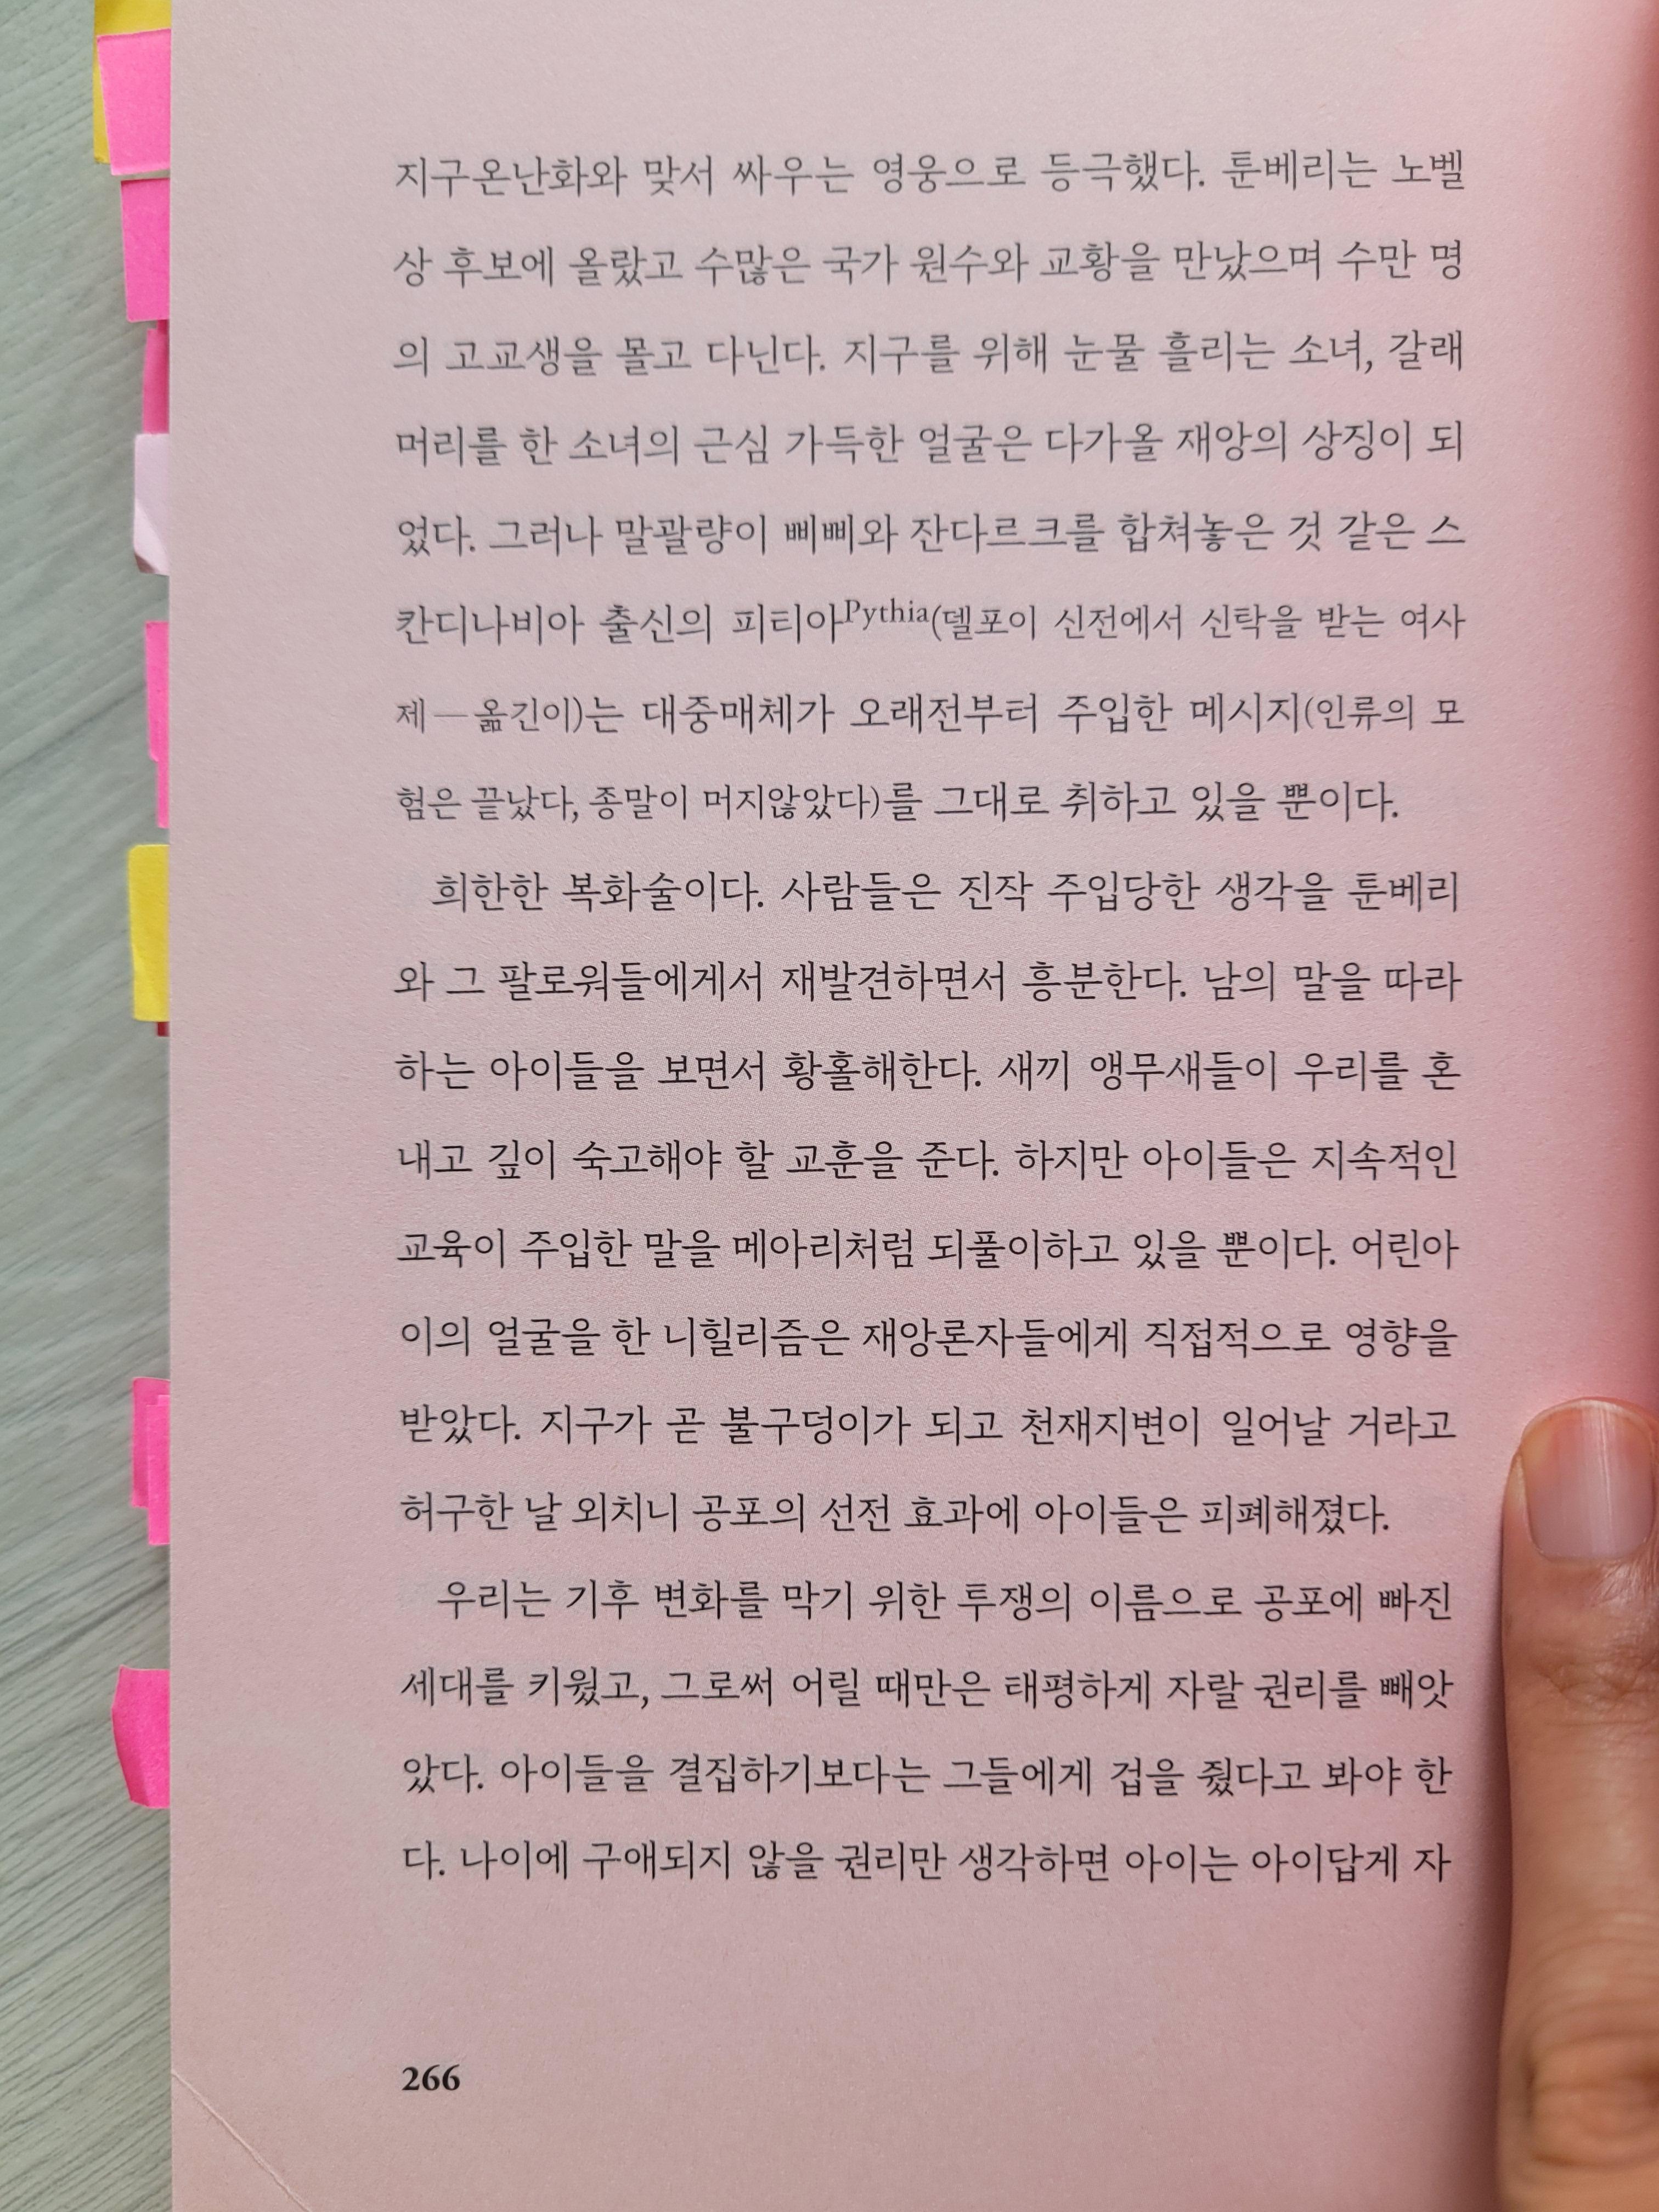 지구온난화와 맞서 싸우는 영웅으로 등극했다. 툰베리는 노벨
상 후보에 올랐고 수많은 국가 원수와 교황을 만났으며 수만 명
의 고교생을 몰고 다닌다. 지구를 위해 눈물 흘리는 소녀, 갈래
머리를 한 소녀의 근심 가득한 얼굴은 다가올 재앙의 상징이 되
었다. 그러나 말괄량이 삐삐와 잔다르크를 합쳐놓은 것 같은 스
칸디나비아 출신의 피티아Pythia(델포이 신전에서 신탁을 받는 여사
제—옮긴이)는 대중매체가 오래전부터 주입한 메시지(인류의 모
험은 끝났다, 종말이 머지않았다)를 그대로 취하고 있을 뿐이다.
희한한 복화술이다. 사람들은 진작 주입당한 생각을 툰베리
와 그 팔로워들에게서 재발견하면서 흥분한다. 남의 말을 따라
하는 아이들을 보면서 황홀해한다. 새끼 앵무새들이 우리를 혼
내고 깊이 숙고해야 할 교훈을 준다. 하지만 아이들은 지속적인
교육이 주입한 말을 메아리처럼 되풀이하고 있을 뿐이다. 어린아
이의 얼굴을 한 니힐리즘은 재앙론자들에게 직접적으로 영향을
받았다. 지구가 곧 불구덩이가 되고 천재지변이 일어날 거라고
허구한 날 외치니 공포의 선전 효과에 아이들은 피폐해졌다.
우리는 기후 변화를 막기 위한 투쟁의 이름으로 공포에 빠진
세대를 키웠고, 그로써 어릴 때만은 태평하게 자랄 권리를 빼앗
았다. 아이들을 결집하기보다는 그들에게 겁을 줬다고 봐야 한
다. 나이에 구애되지 않을 권리만 생각하면 아이는 아이답게 자
266